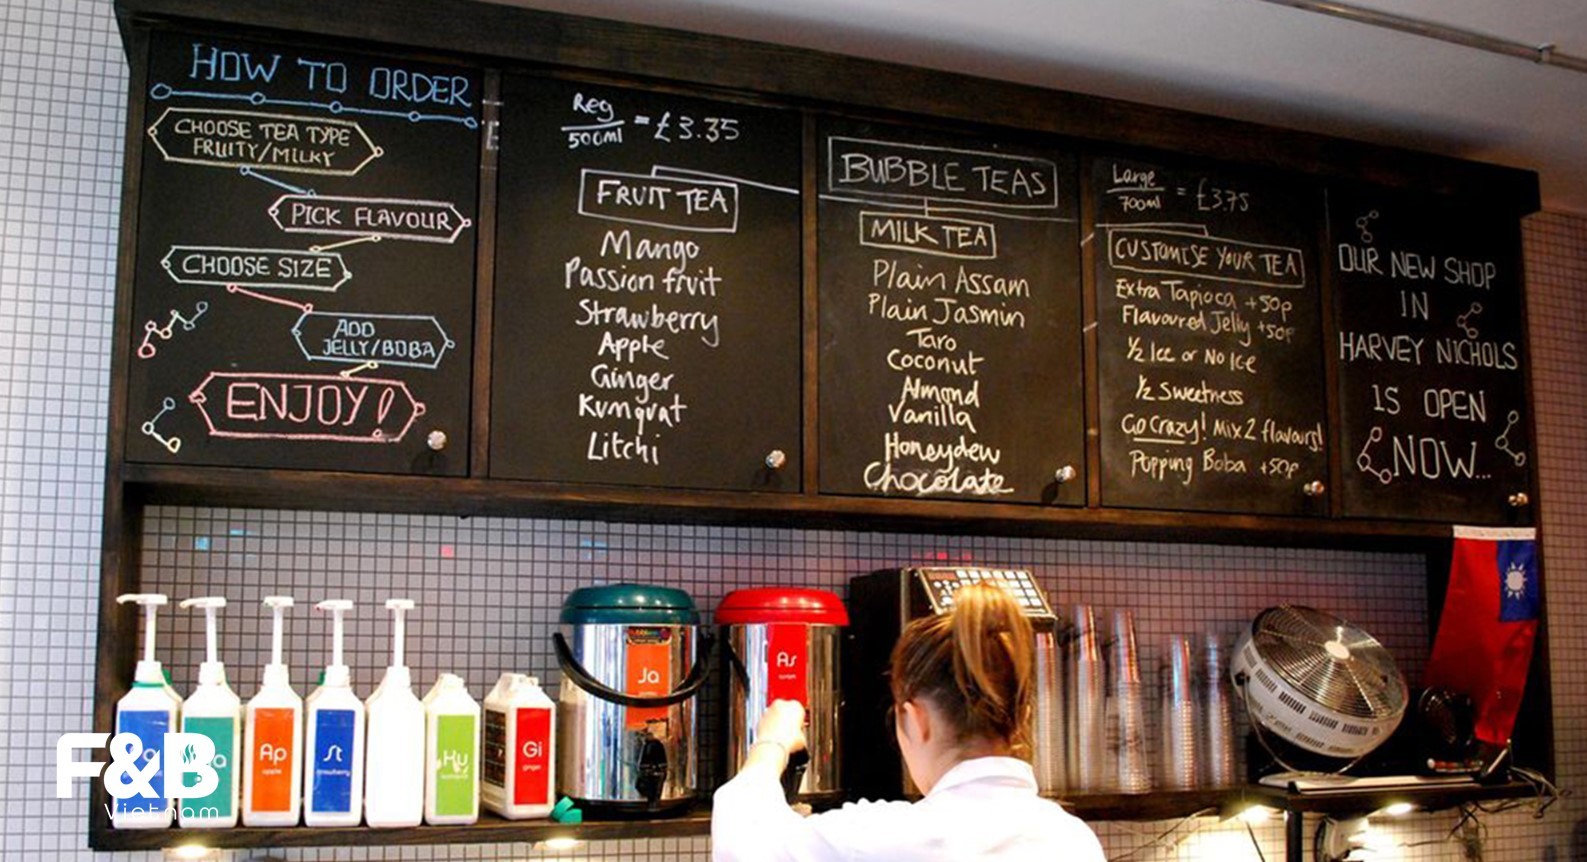 HOW TO ORDER
CHOOSE TEA TYPE
FRUITY/MILKY
PICK FLAVOUR
CHOOSE SIZE
ADD
JELLY/BOBA
ENJOY!
Reg
500ml = £3.35
FRUIT TEA
Mango
Passion fruit
Strawberry
Apple
Ginger
Kumquat
Litchi
BUBBLE TEAS
MILK TEA
Plain Assam
Plain Jasmin
Taro
Coconut
Almond
Vanilla
Honeydew
Chocolate
Large
700ml = £3.75
CUSTOMISE YOUR TEA
Extra Tapioca +50p
Flavoured Jelly +50p
½ Ice or No Ice
½ Sweetness
Go Crazy! Mix 2 flavours!
Popping Boba +50p
OUR NEW SHOP
IN
HARVEY NICHOLS
IS OPEN
NOW...
Ap
apple
St
strawberry
Ku
kumquat
Gi
ginger
Ja
As
assam
F&B
Vietnam